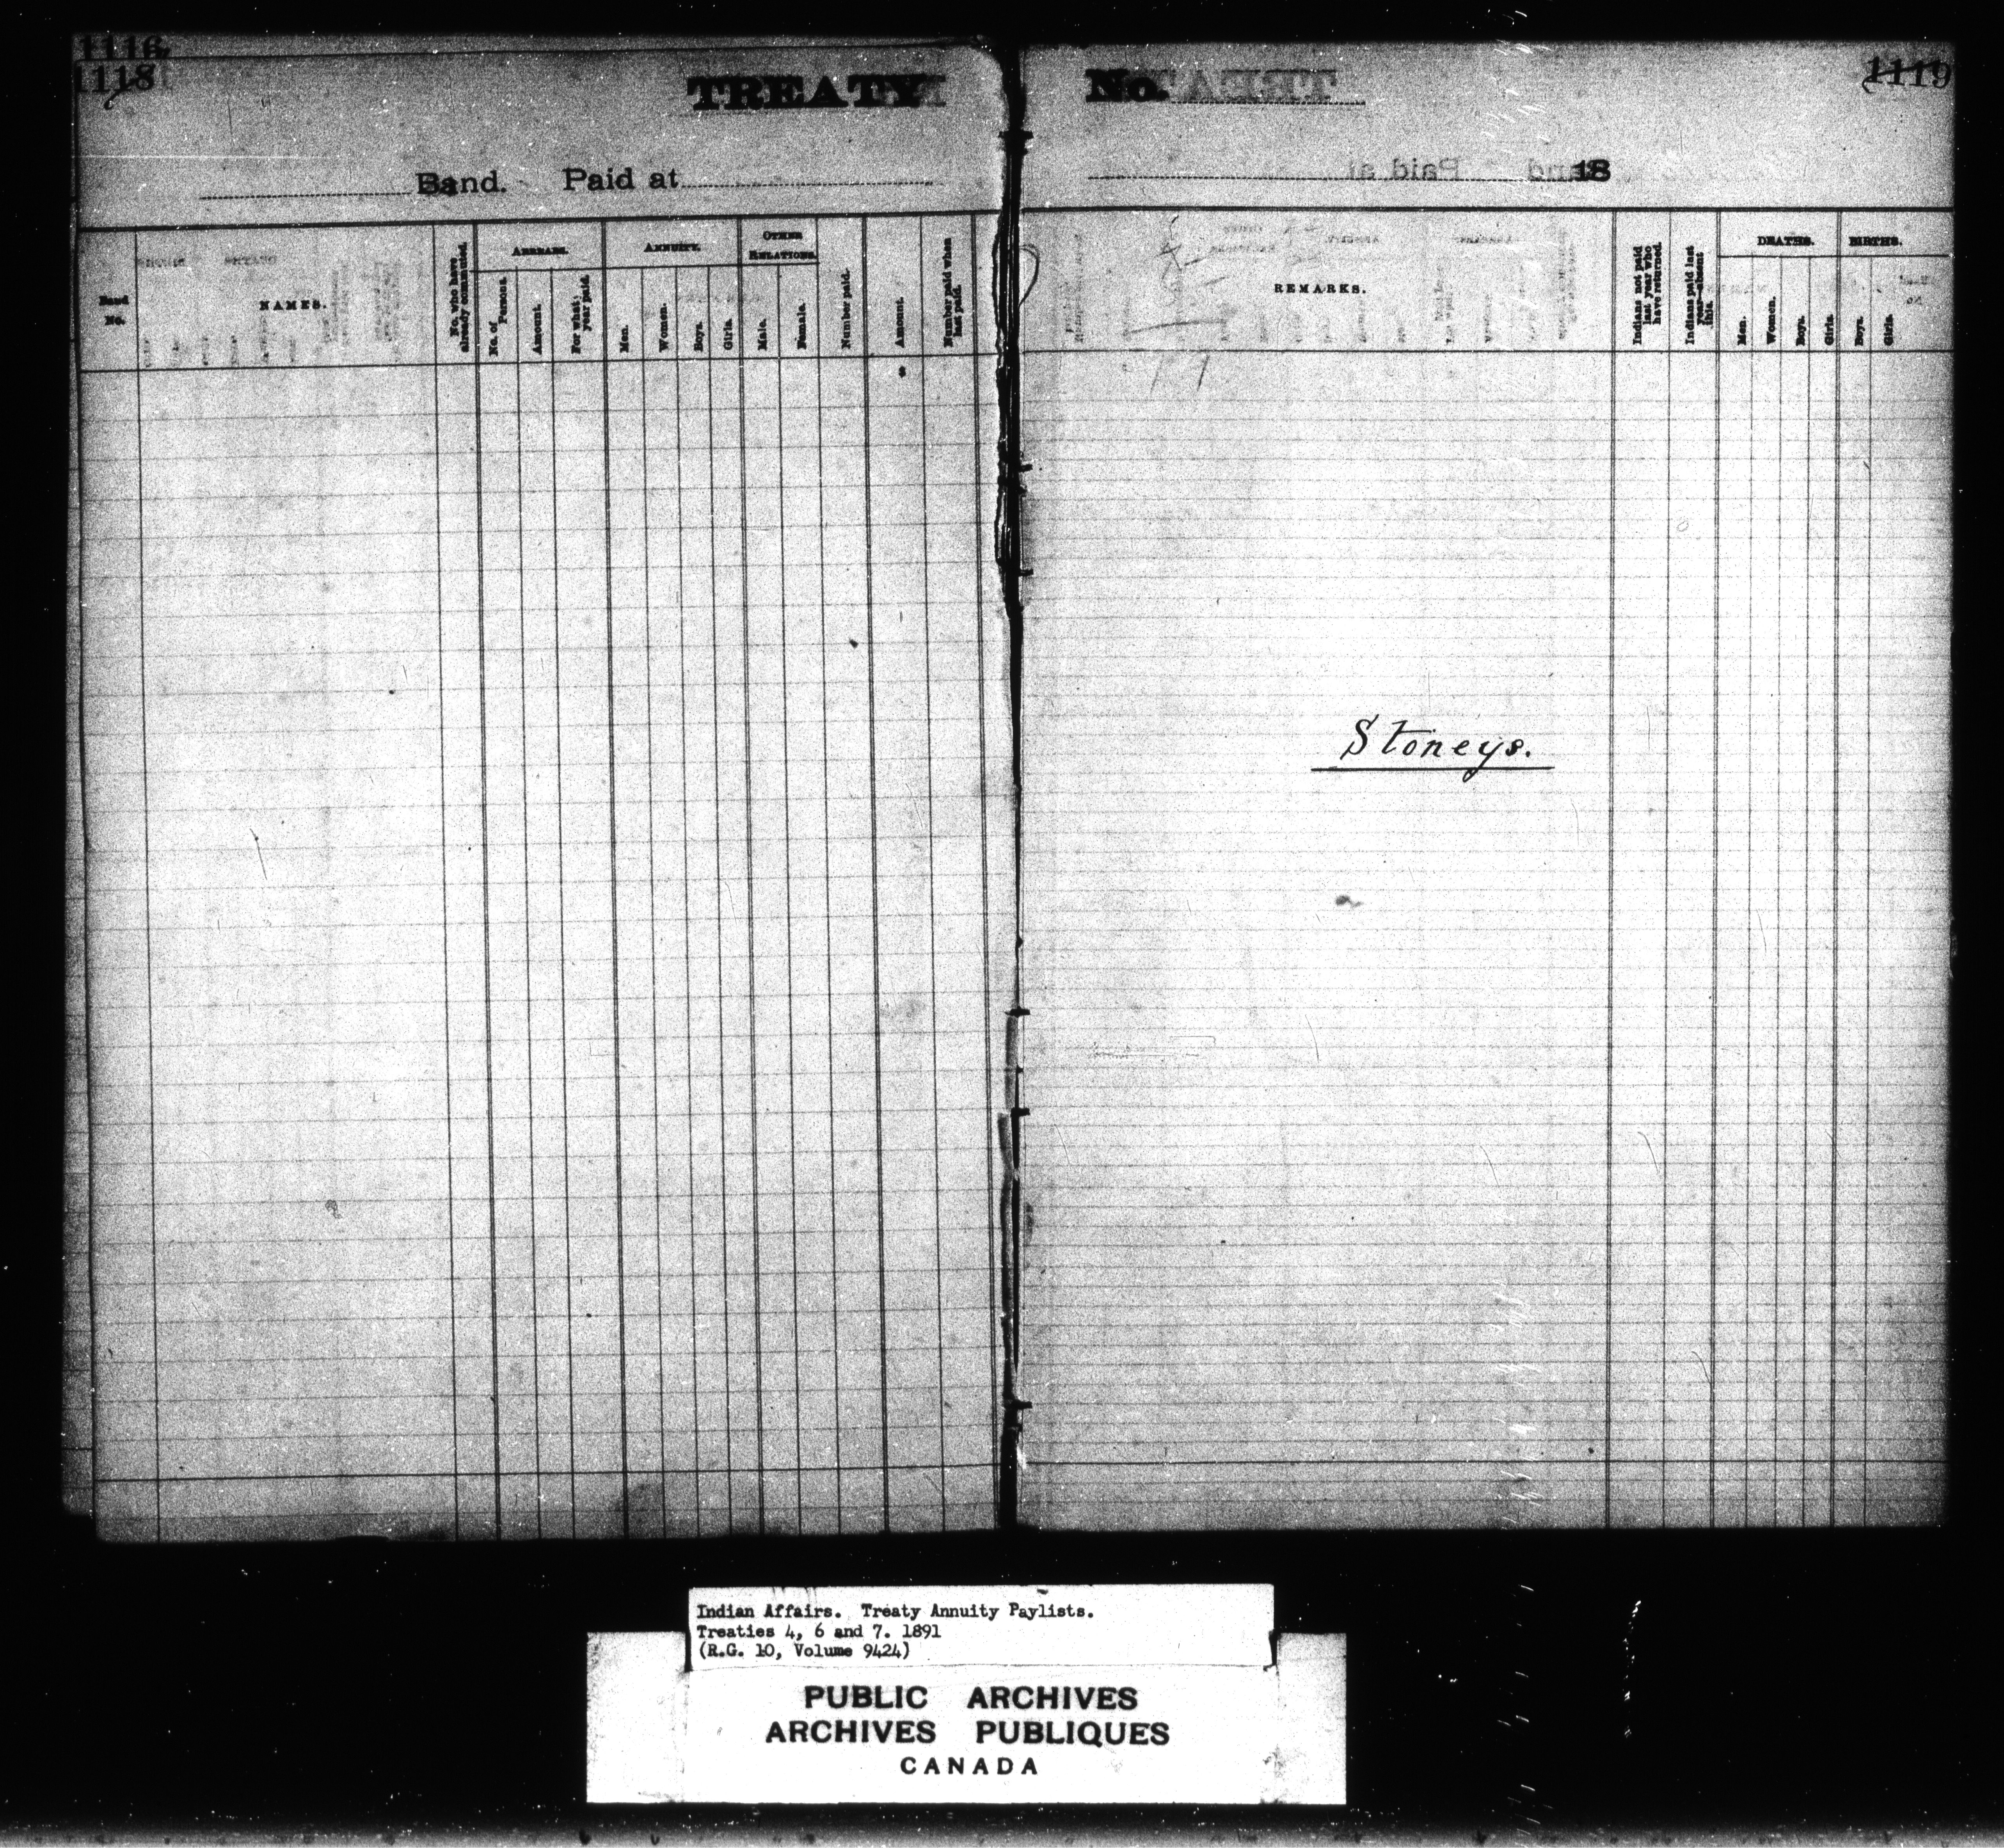 1116
1118
TREATY No.
1119
Band. Paid at
18
Band No.
NAMES.
No. who have already commuted.
ARREARS.
No. of Persons.
Amount.
For what year paid.
ANNUITY.
Men.
Women.
Boys.
Girls.
OTHER RELATIONS.
Male.
Female.
Number paid.
Amount.
$
Number paid when last paid.
REMARKS.
Indians not paid last year who have returned.
Indians paid last year—absent this.
DEATHS.
Men.
Women.
Boys.
Girls.
BIRTHS.
Boys.
Girls.
Stoneys.
Indian Affairs. Treaty Annuity Paylists.
Treaties 4, 6 and 7. 1891
(R.G. 10, Volume 9424)
PUBLIC ARCHIVES
ARCHIVES PUBLIQUES
CANADA